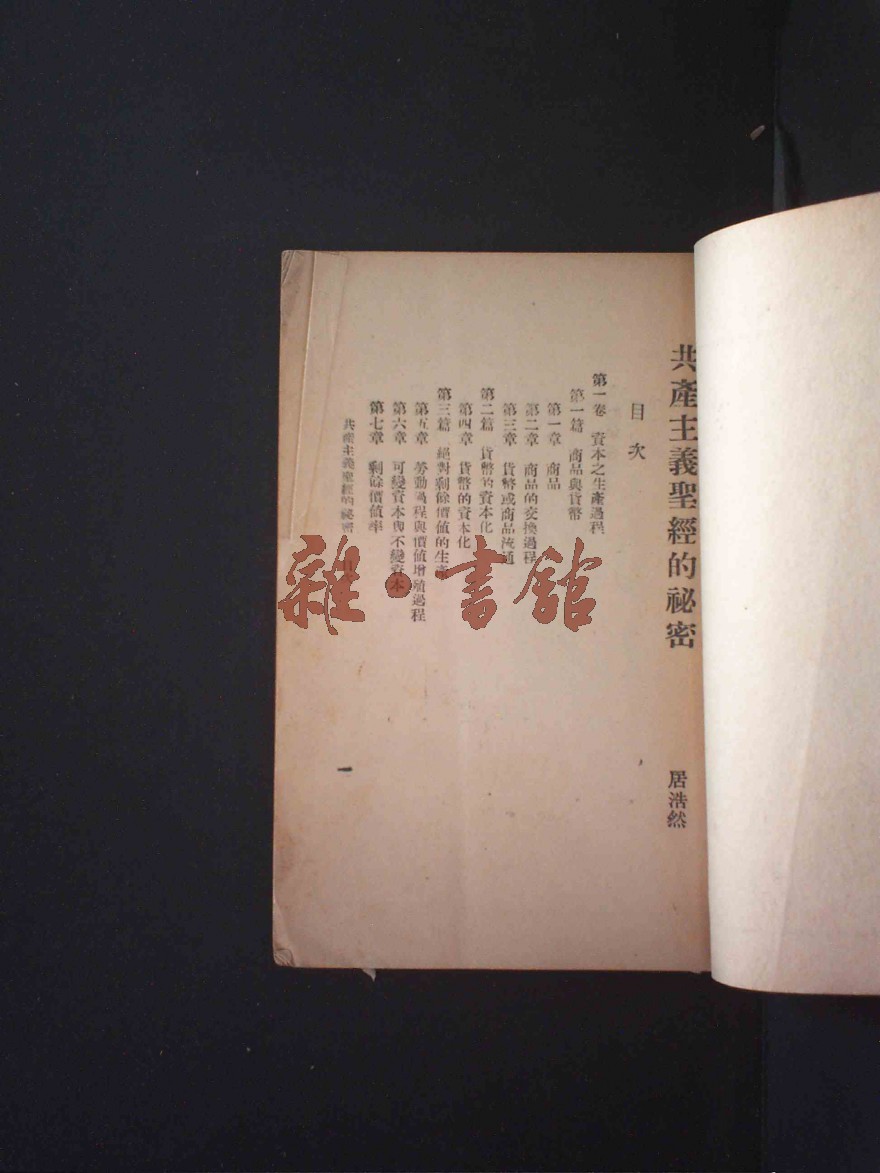 共產主義聖經的祕密
居浩然
目次
第一卷 資本之生產過程
第一篇 商品與貨幣
第一章 商品
第二章 商品的交換過程
第三章 貨幣或商品流通
第二篇 貨幣的資本化
第四章 貨幣的資本化
第三篇 絕對剩餘價值的生產
第五章 勞動過程與價值增殖過程
第六章 可變資本與不變資本
第七章 剩餘價值率
共產主義聖經的祕密
一
雜·書館